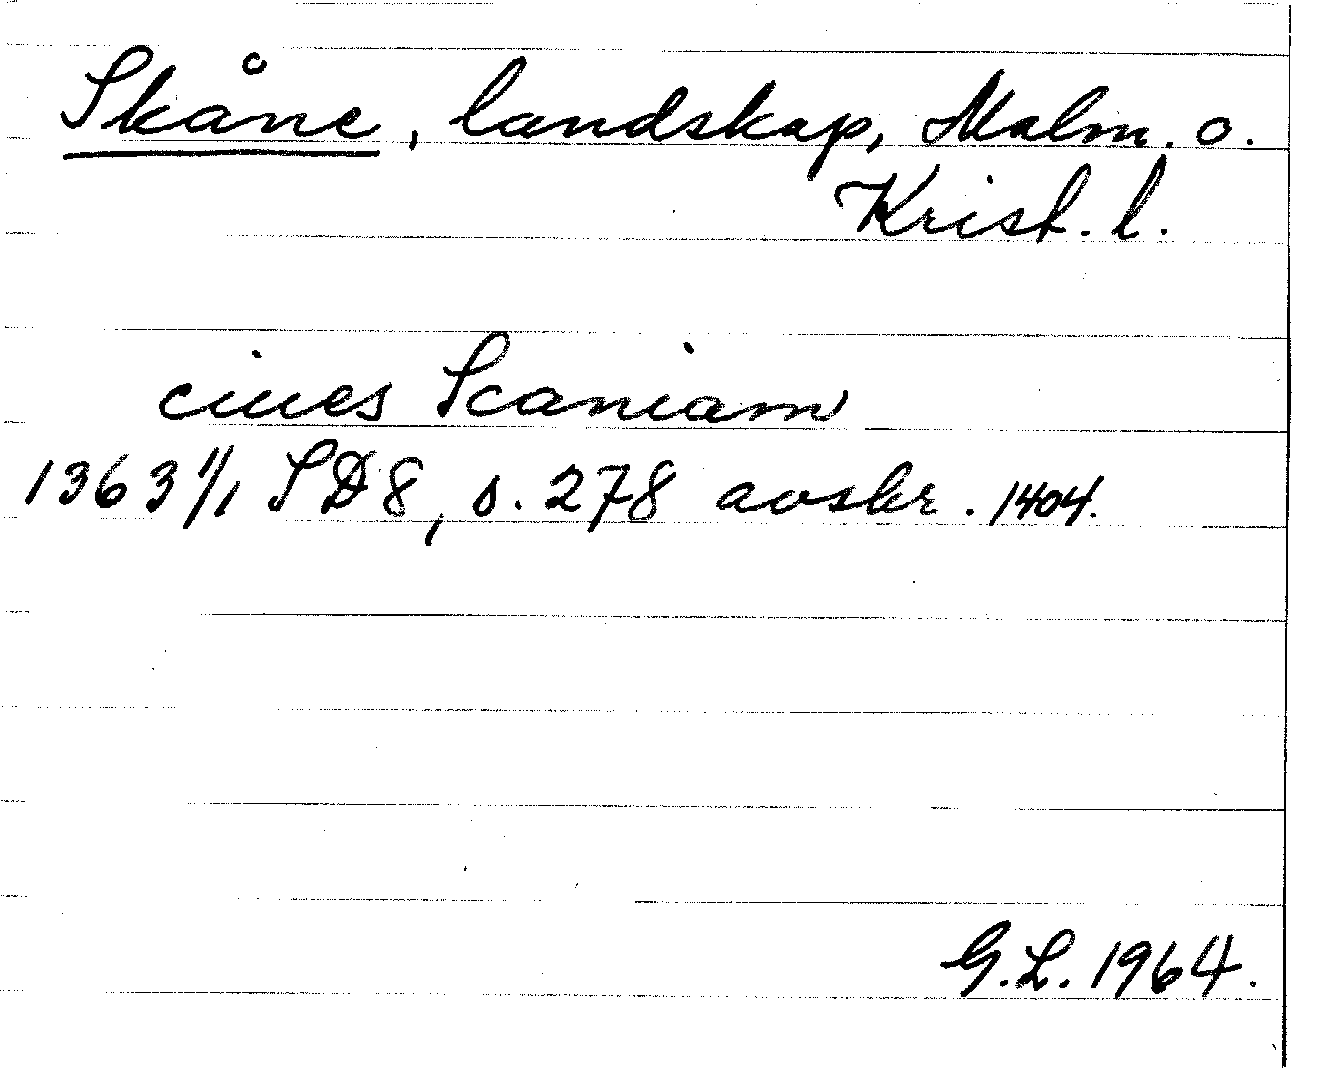 Skåne, landskap, Malm. o.
Krist. l.
ciues Scaniam
1363 1/1 SD 8, s. 278 avskr. 1404.
G.L. 1964.